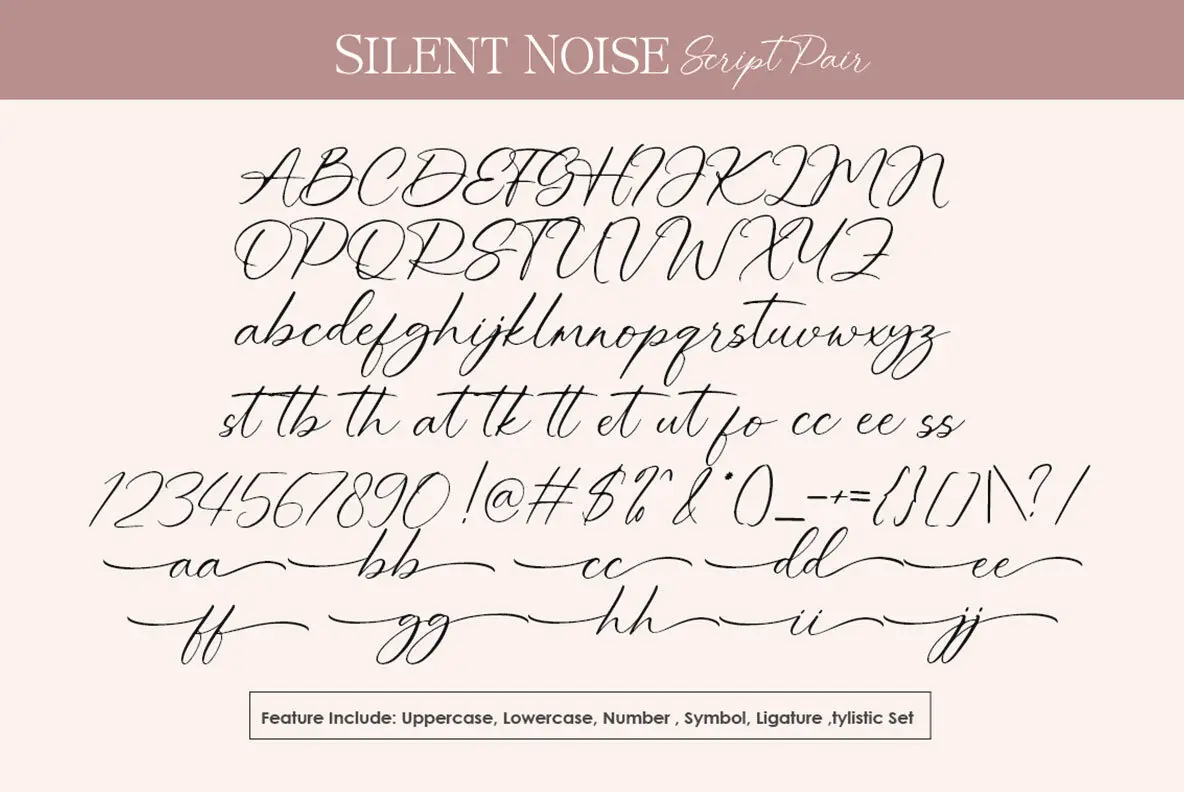 SILENT NOISE Script Pair
ABCDEFGHIJKLMN
OPQRSTUVWXYZ
abcdefghijklmnopqrstuvwxyz
st tb th at tk tt et ut fo cc ee ss
1234567890 !@#$%^&*()_-+={}[]|\?/
aa bb cc dd ee
ff gg hh ii jj
Feature Include: Uppercase, Lowercase, Number , Symbol, Ligature ,tylistic Set